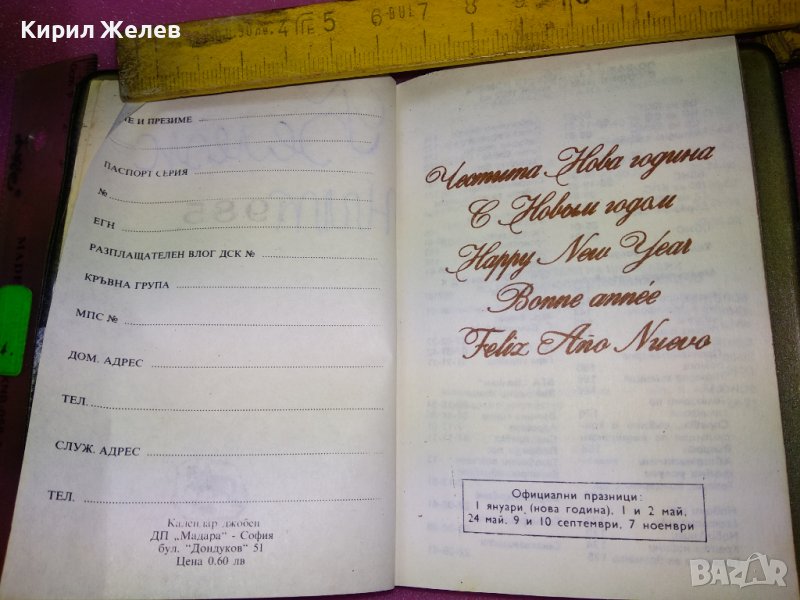 Кирил Желев
4 5 6 7 8 9 10
Е И ПРЕЗИМЕ
ПАСПОРТ СЕРИЯ
№
ЕГН
РАЗПЛАЩАТЕЛЕН ВЛОГ ДСК №
КРЪВНА ГРУПА
МПС №
ДОМ. АДРЕС
ТЕЛ.
СЛУЖ. АДРЕС
ТЕЛ.
Календар джобен
ДП „Мадара" - София
бул. "Дондуков" 51
Цена 0.60 лв
Честита Нова година
С Новым годом
Happy New Year
Bonne année
Feliz Año Nuevo
Официални празници:
1 януари (нова година), 1 и 2 май,
24 май, 9 и 10 септември, 7 ноември
BAZAR